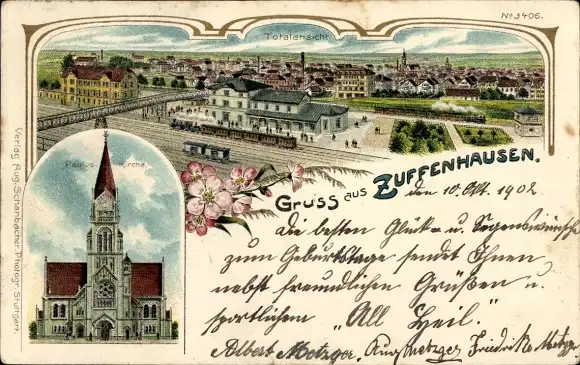 No 3406.
Totalansicht
Paulus-Kirche
Gruss aus Zuffenhausen.
den 10. Okt. 1902.
Die besten Glück- u. Segenswünsche
zum Geburtstage sendet Ihnen
nebst freundlichen Grüßen u.
sportlichem "All Heil."
Albert Metzger, Metzger Friedrike Metzger
Verlag Aug. Schanbacher, Photogr. Stuttgart.